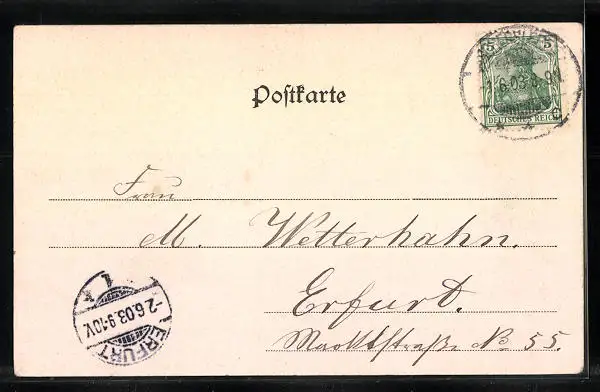 5 5
6.03
DEUTSCHES REICH
Postkarte
Frau
M. Wetterhahn.
Erfurt.
Marktstraße No 55.
-2.6.03.9-10V.
ERFURT
1